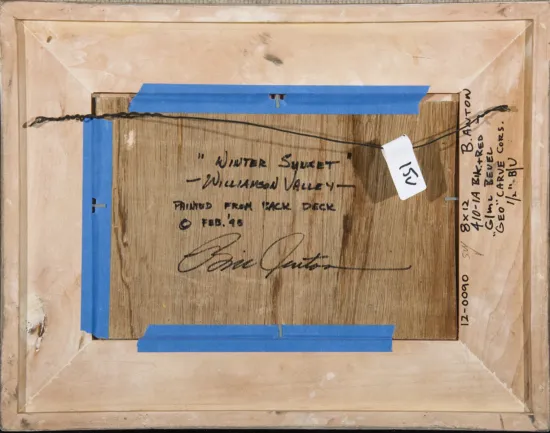 "WINTER SUNSET"
— WILLIAMSON VALLEY —
PAINTED FROM BACK DECK
© FEB. '98
Bill Anton
15V
B. ANTON
8X12
410-1A BLK+RED
"G/ML BEVEL
"GEO" CARVE CORS.
1/2" B/U
12-0090